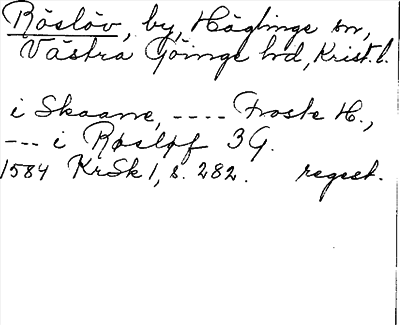 Röslöv, by, Häglinge sn,
Västra Göinge hd, Krist. l.
i Skaane, ---- Froste H.,
--- i Røsløf 3 G.
1584 KrSk 1, s. 282. regest.